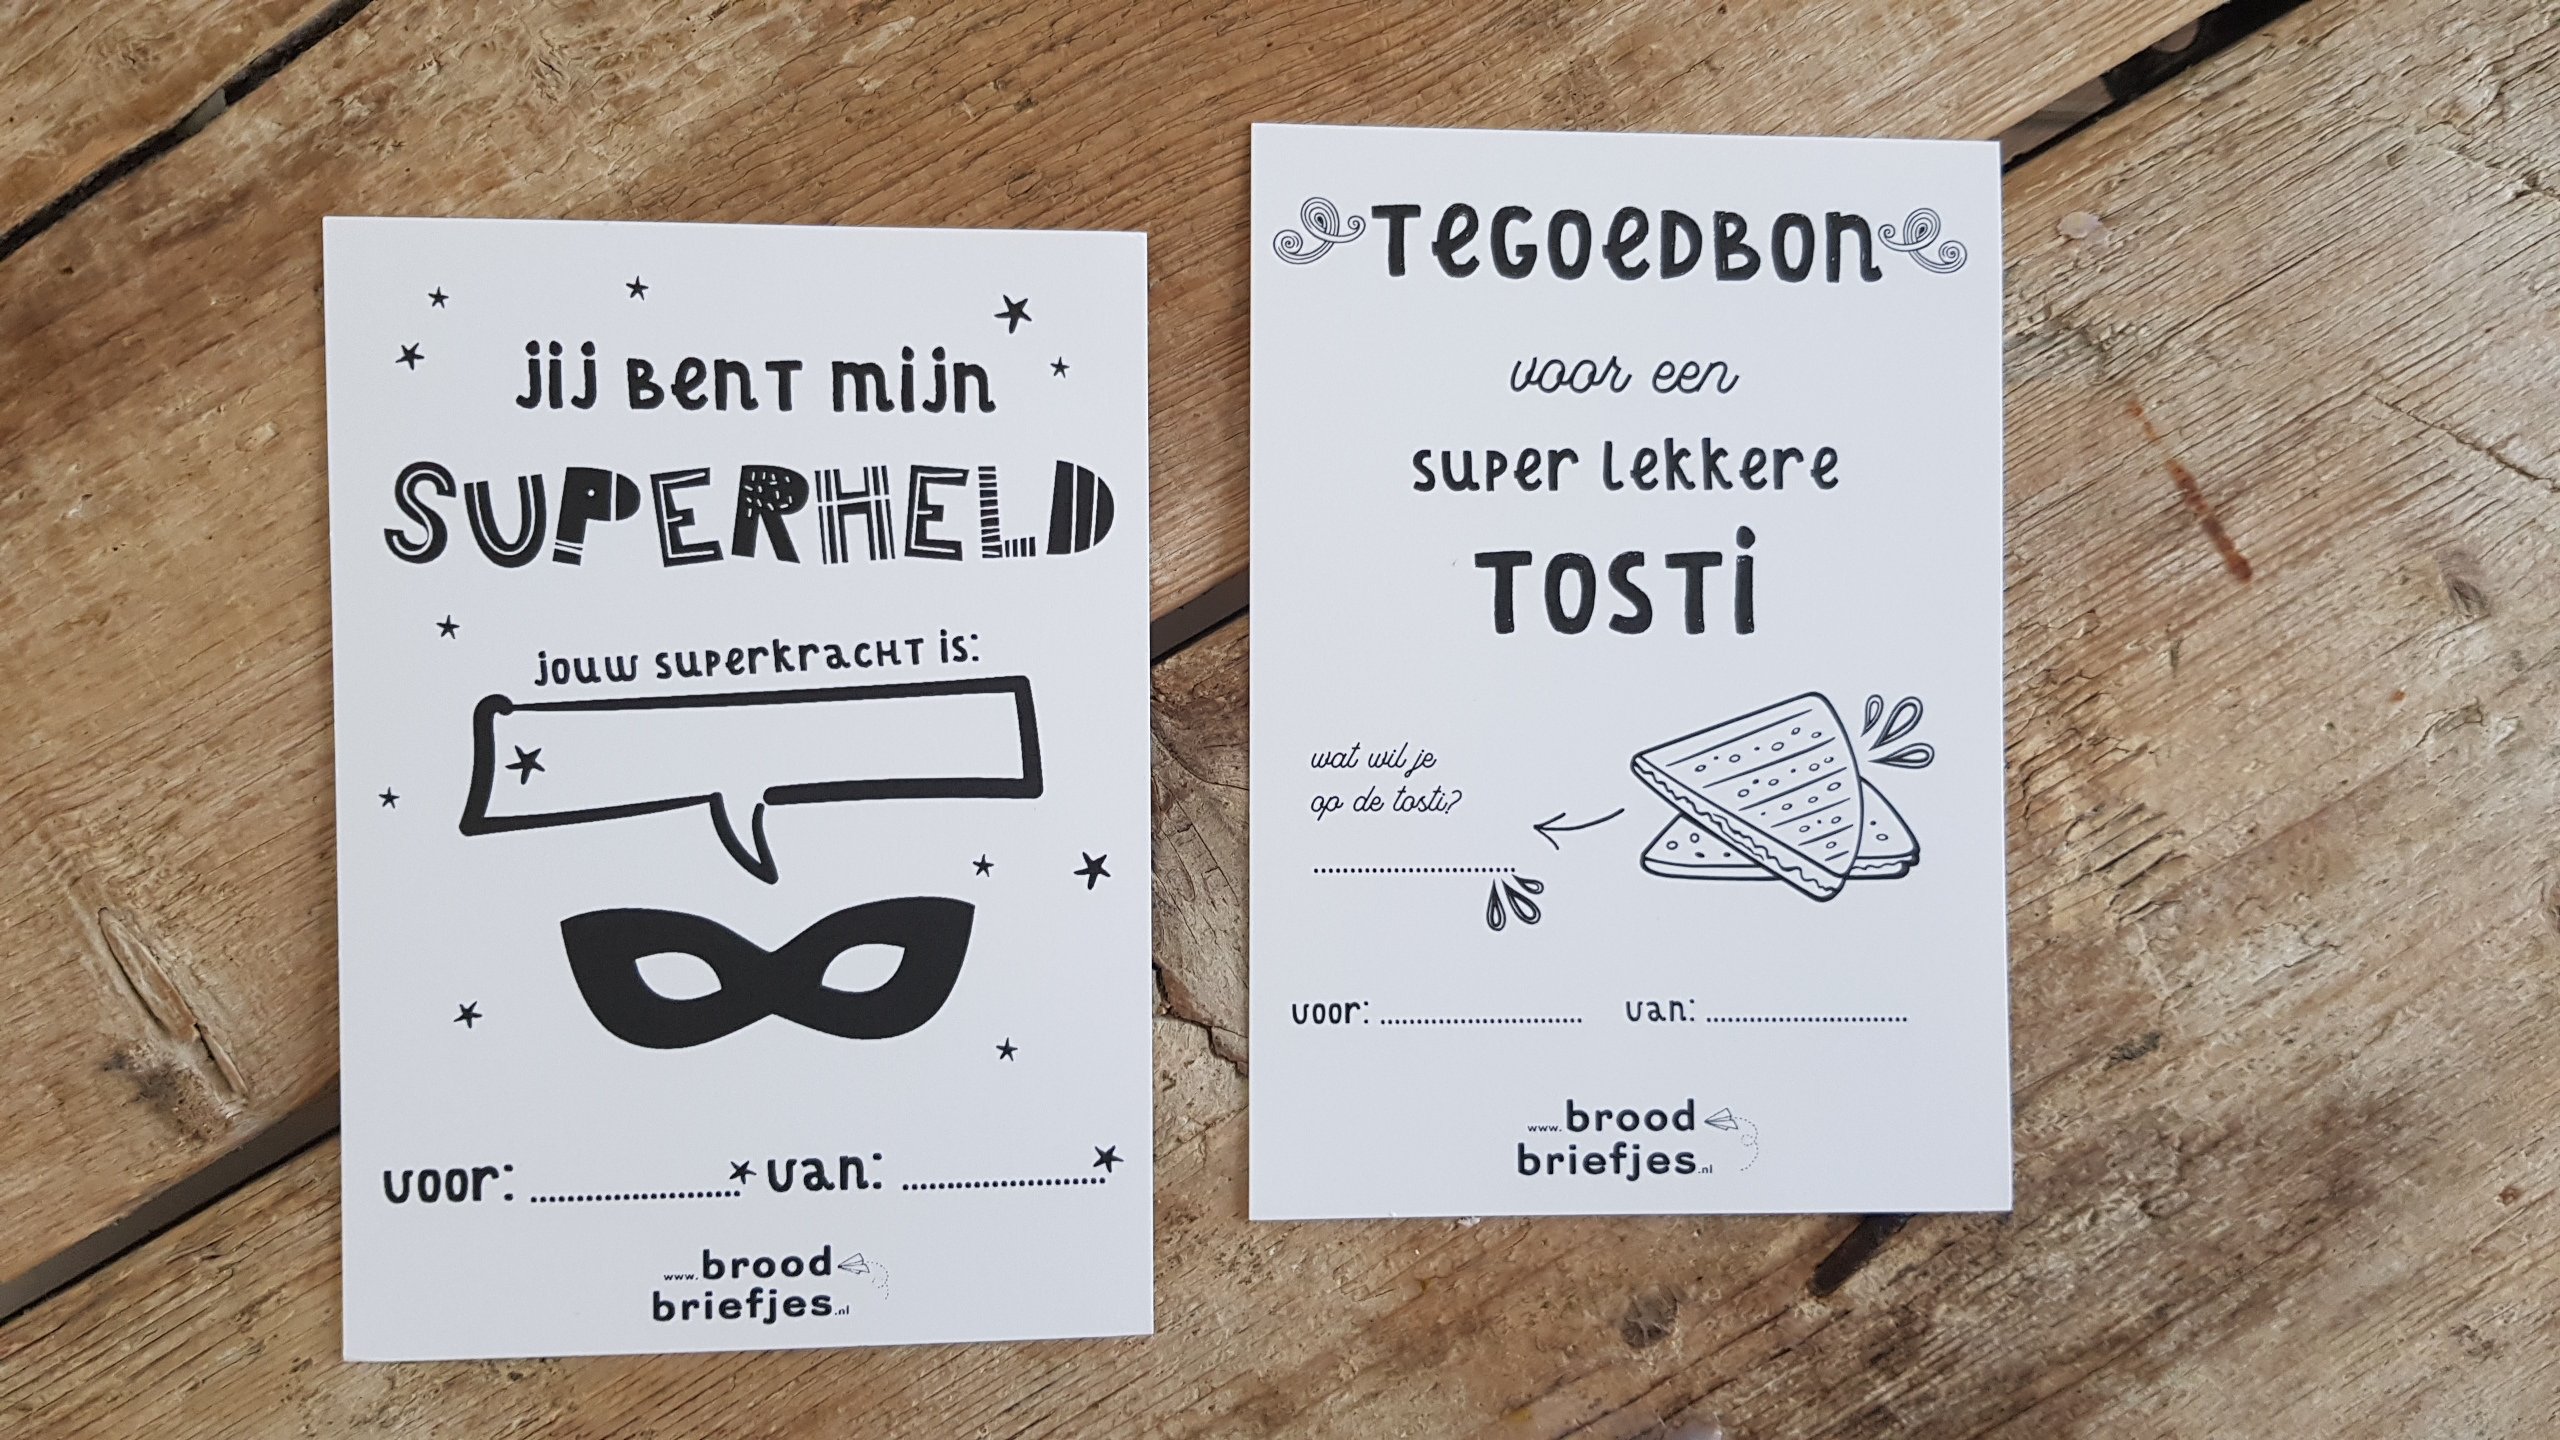 jij bent mijn
SUPERHELD
jouw superkracht is:
voor: .......................... van: ..........................
www.brood
briefjes.nl
TEGOEDBON
voor een
super lekkere
TOSTI
wat wil je
op de tosti?
..........................
voor: .......................... van: ..........................
www.brood
briefjes.nl